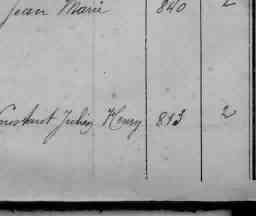 Jean Marie 840 2
Constant Julien Henry 813 2